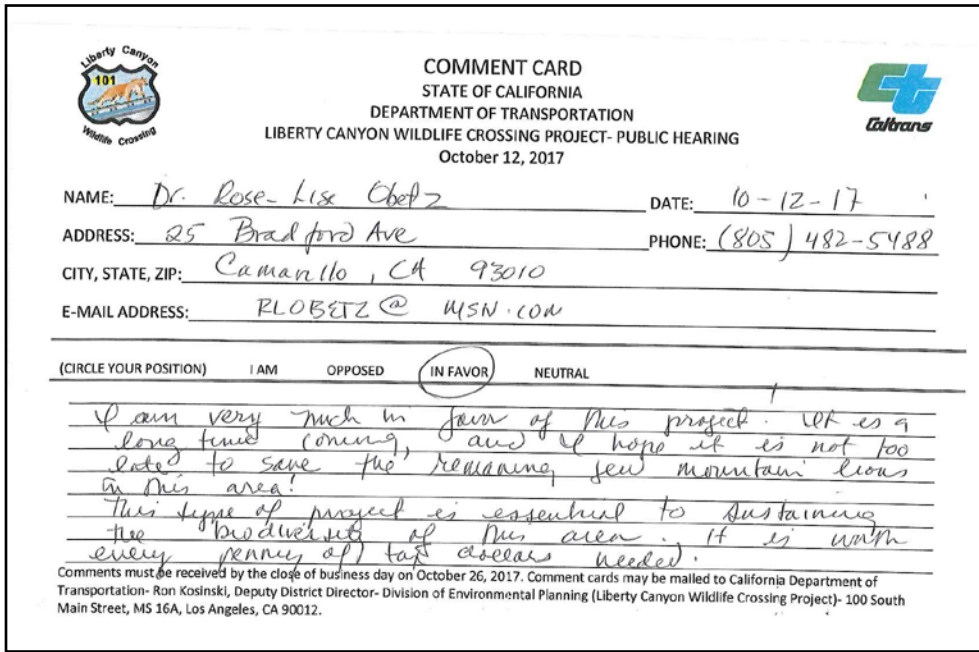 Liberty Canyon
101
Wildlife Crossing
COMMENT CARD
STATE OF CALIFORNIA
DEPARTMENT OF TRANSPORTATION
LIBERTY CANYON WILDLIFE CROSSING PROJECT- PUBLIC HEARING
October 12, 2017
Caltrans
NAME: Dr. Rose-Lise Obetz DATE: 10-12-17
ADDRESS: 25 Bradford Ave PHONE: (805) 482-5488
CITY, STATE, ZIP: Camarillo, CA 93010
E-MAIL ADDRESS: RLOBETZ@ MSN.COM
(CIRCLE YOUR POSITION) I AM OPPOSED IN FAVOR NEUTRAL
I am very much in favor of this project. It is a
long time coming, and I hope it is not too
late to save the remaining few mountain lions
in this area!
This type of project is essential to sustaining
the biodiversity of this area. It is worth
every penny of tax dollars needed.
Comments must be received by the close of business day on October 26, 2017. Comment cards may be mailed to California Department of
Transportation- Ron Kosinski, Deputy District Director- Division of Environmental Planning (Liberty Canyon Wildlife Crossing Project)- 100 South
Main Street, MS 16A, Los Angeles, CA 90012.